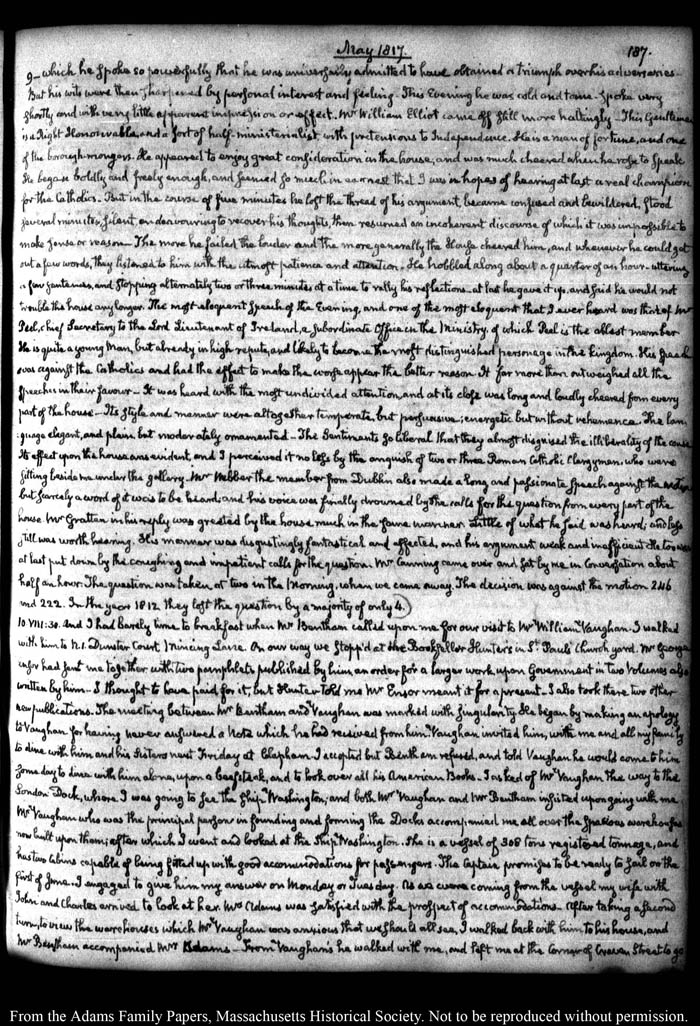 May 1817.
187.
9— which he spoke so powerfully that he was universally admitted to have obtained a triumph over his adversaries—
But his wits were then sharpened by personal interest and feeling. This Evening he was cold and tame— spoke very
shortly and with very little apparent impression or effect. Mr William Elliot came off still more haltingly— This Gentleman
is a Right Honourable, and a sort of half-ministerialist with pretensions to Independence. He is a man of fortune, and one
of the borough-mongers. He appeared to enjoy great consideration in the house, and was much cheered when he rose to speak
He began boldly and freely enough, and seemed so much in earnest that I was in hopes of hearing at last a real champion
for the Catholics. But in the course of five minutes he lost the thread of his argument, became confused and bewildered, stood
several minutes, silent, endeavouring to recover his thoughts, then resumed an incoherent discourse of which it was impossible to
make sense or reason— The more he failed the louder and the more generally the House cheered him, and whenever he could get
out a few words, they listened to him with the utmost patience and attention. He hobbled along about a quarter of an hour— uttering
a few sentences, and stopping alternately two or three minutes at a time to rally his reflections— at last he gave it up, and said he would not
trouble the house any longer. The most eloquent Speech of the Evening, and one of the most eloquent that I ever heard was that of Mr
Peel, chief Secretary to the Lord Lieutenant of Ireland, a subordinate Office in the Ministry, of which Peel is the ablest member
He is quite a young Man, but already in high repute, and likely to become the most distinguished personage in the Kingdom. His Speech
was against the Catholics and had the effect to make the worse appear the better reason. It far more than outweighed all the
Speeches in their favour— It was heard with the most undivided attention, and at its close was long and loudly cheered from every
part of the house— Its style and manner were altogether temperate, but persuasive; energetic but without vehemence. The lan-
:guage elegant, and plain, but moderately ornamented— The Sentiments so liberal that they almost disguised the illiberality of the cause
Its effect upon the house was evident, and I perceived it no less by the anguish of two or three Roman Catholic Clergymen, who were
sitting beside me under the gallery. Mr Webber the member from Dublin also made a long and passionate speech against the
but scarcely a word of it was to be heard, and his voice was finally drowned by the calls for the question from every part of the
house. Mr Grattan in his reply was greeted by the house much in the same manner. Little of what he said was heard; and less
still was worth hearing. His manner was disgustingly fantastical and affected, and his argument weak and inefficient He too was
at last put down by the coughing and impatient calls for the question. Mr Canning came over and sat by me in conversation about
half an hour. The question was taken at two in the Morning, when we came away. The decision was against the motion 246
and 222. In the year 1812 they lost the question by a majority of only 4.
10 VIII:30. And I had barely time to breakfast when Mr Bentham called upon me for our visit to Mr William Vaughan. I walked
with him to N. 1. Dunster Court, Mincing Lane. On our way we stopp'd at the Bookseller Hunter's in St. Pauls Church yard. Mr George
Ensor had sent me together with two pamphlets published by him an order for a larger work upon Government in two Volumes also
written by him— I thought to have paid for it, but Hunter told me Mr Ensor meant it for a present. I also took there two other
new publications. The meeting between Mr Bentham and Vaughan was marked with singularity He began by making an apology
to Vaughan for having never answered a Note which he had received from him. Vaughan invited him, with me and all my family
to dine with him and his Sisters next Friday at Clapham. I accepted but Bentham refused, and told Vaughan he would come to him
some day to dine with him alone, upon a beefsteak, and to look over all his American Books. I asked of Mr Vaughan the way to the
London Dock, where I was going to see the Ship Washington; and both Mr Vaughan and Mr Bentham insisted upon going with me
Mr Vaughan who was the principal person in founding and forming the Docks accompanied me all over the spacious warehouses
now built upon them; after which I went and looked at the Ship Washington. She is a vessel of 308 tons registered tonnage, and
has two Cabins capable of being fitted up with good accommodations for passengers. The Captain promises to be ready to sail on the
first of June. I engaged to give him my answer on Monday or Tuesday. As we were coming from the vessel my wife with
John and Charles arrived to look at her. Mrs Adams was satisfied with the prospect of accommodations. After taking a second
turn, to view the warehouses which Mr Vaughan was anxious that we should all see, I walked back with him, to his house, and
Mr Bentham accompanied Mrs Adams— From Vaughan's he walked with me, and left me at the Corner of Craven Street to go
From the Adams Family Papers, Massachusetts Historical Society. Not to be reproduced without permission.